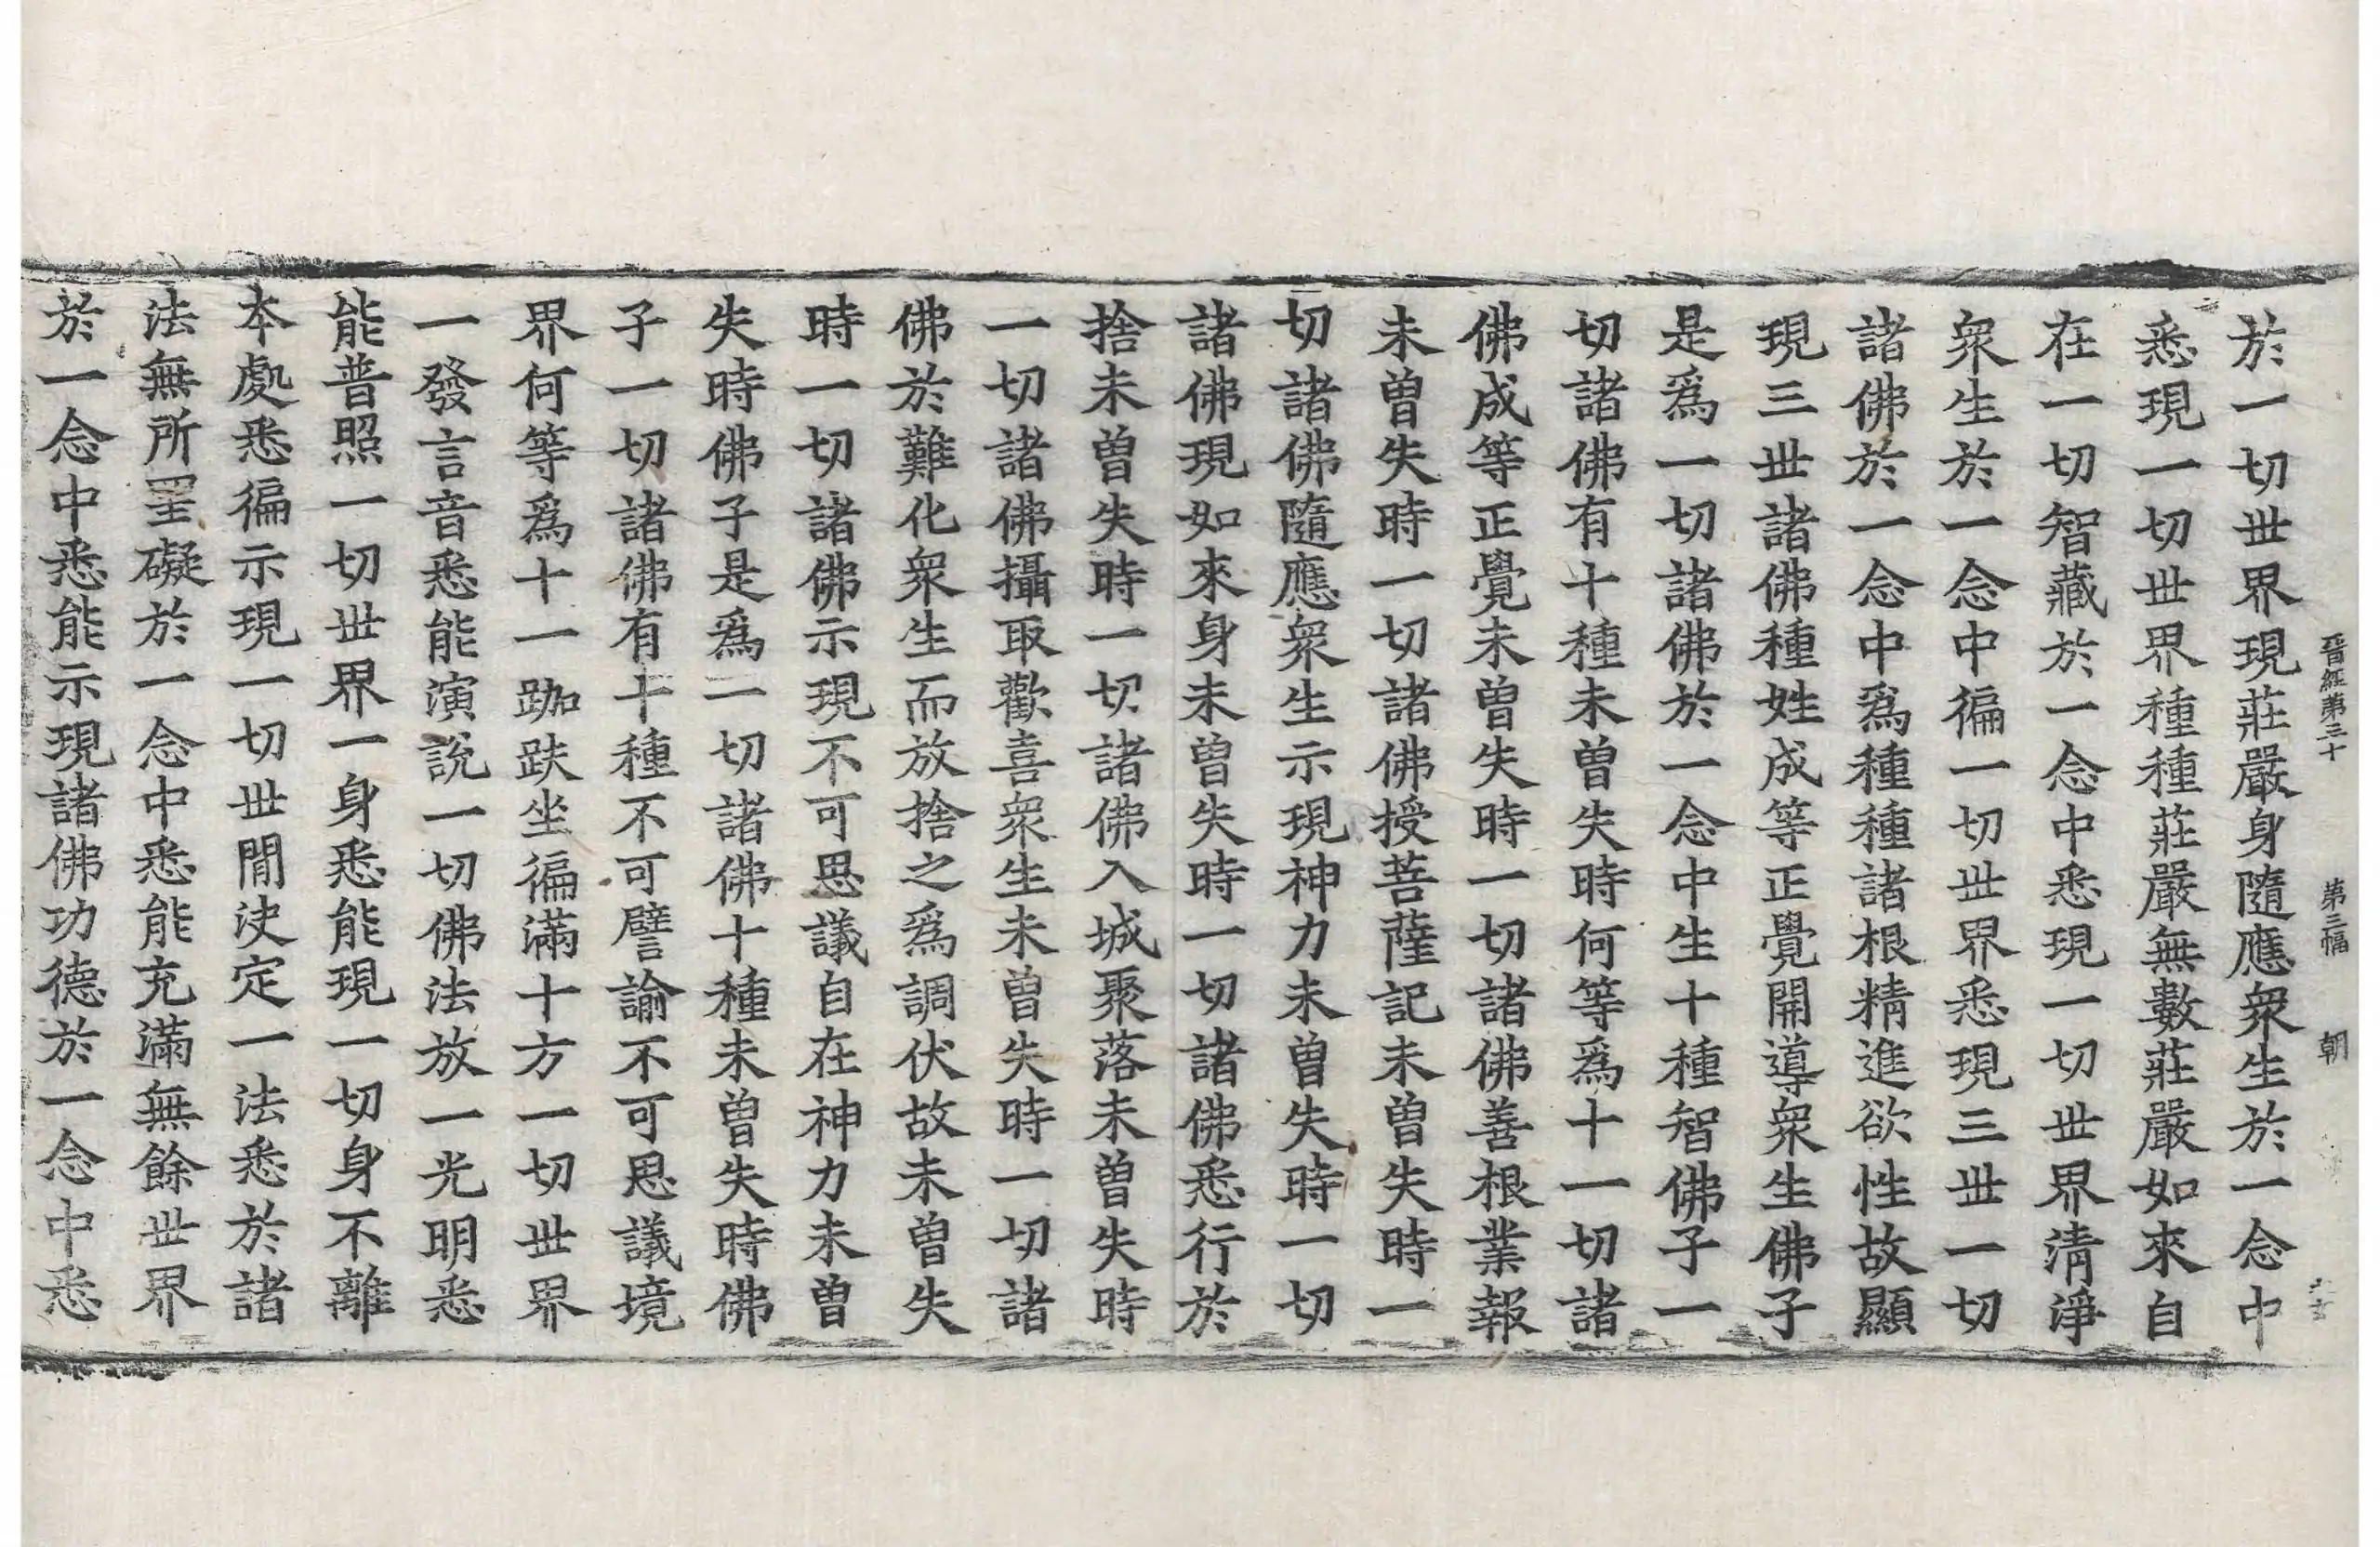 晉經第三十 第三幅 朝
於一切世界現莊嚴身隨應衆生於一念中
悉現一切世界種種莊嚴無數莊嚴如來自
在一切智藏於一念中悉現一切世界清淨
衆生於一念中徧一切世界悉現三世一切
諸佛於一念中爲種種諸根精進欲性故顯
現三世諸佛種姓成等正覺開導衆生佛子
是爲一切諸佛於一念中生十種智佛子一
切諸佛有十種未曾失時何等爲十一切諸
佛成等正覺未曾失時一切諸佛善根業報
未曾失時一切諸佛授菩薩記未曾失時一
切諸佛隨應衆生示現神力未曾失時一切
諸佛現如來身未曾失時一切諸佛悉行於
捨未曾失時一切諸佛入城聚落未曾失時
一切諸佛攝取歡喜衆生未曾失時一切諸
佛於難化衆生而放捨之爲調伏故未曾失
時一切諸佛示現不可思議自在神力未曾
失時佛子是爲一切諸佛十種未曾失時佛
子一切諸佛有十種不可譬諭不可思議境
界何等爲十一跏趺坐徧滿十方一切世界
一發言音悉能演說一切佛法放一光明悉
能普照一切世界一身悉能現一切身不離
本處悉徧示現一切世閒決定一法悉於諸
法無所罣礙於一念中悉能充滿無餘世界
於一念中悉能示現諸佛功德於一念中悉